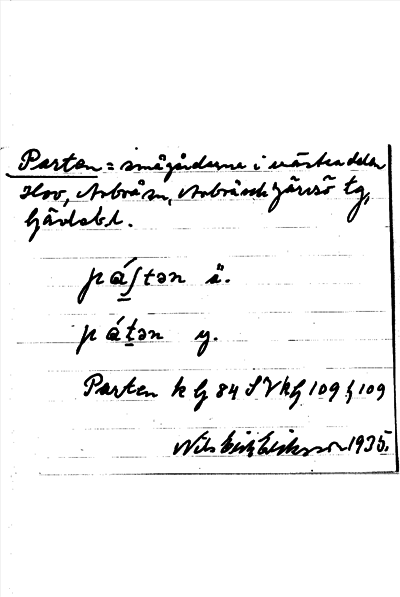 Parten = smågårdarne i västra delen
Hov, Arbrå sn, Arbrå och Järvsö tg,
Gävlebl.
pá̱ʃtən ä.
páṯən y.
Parten k G 84 S V k G 109 G 109
Nils Erik Eriksson 1935.